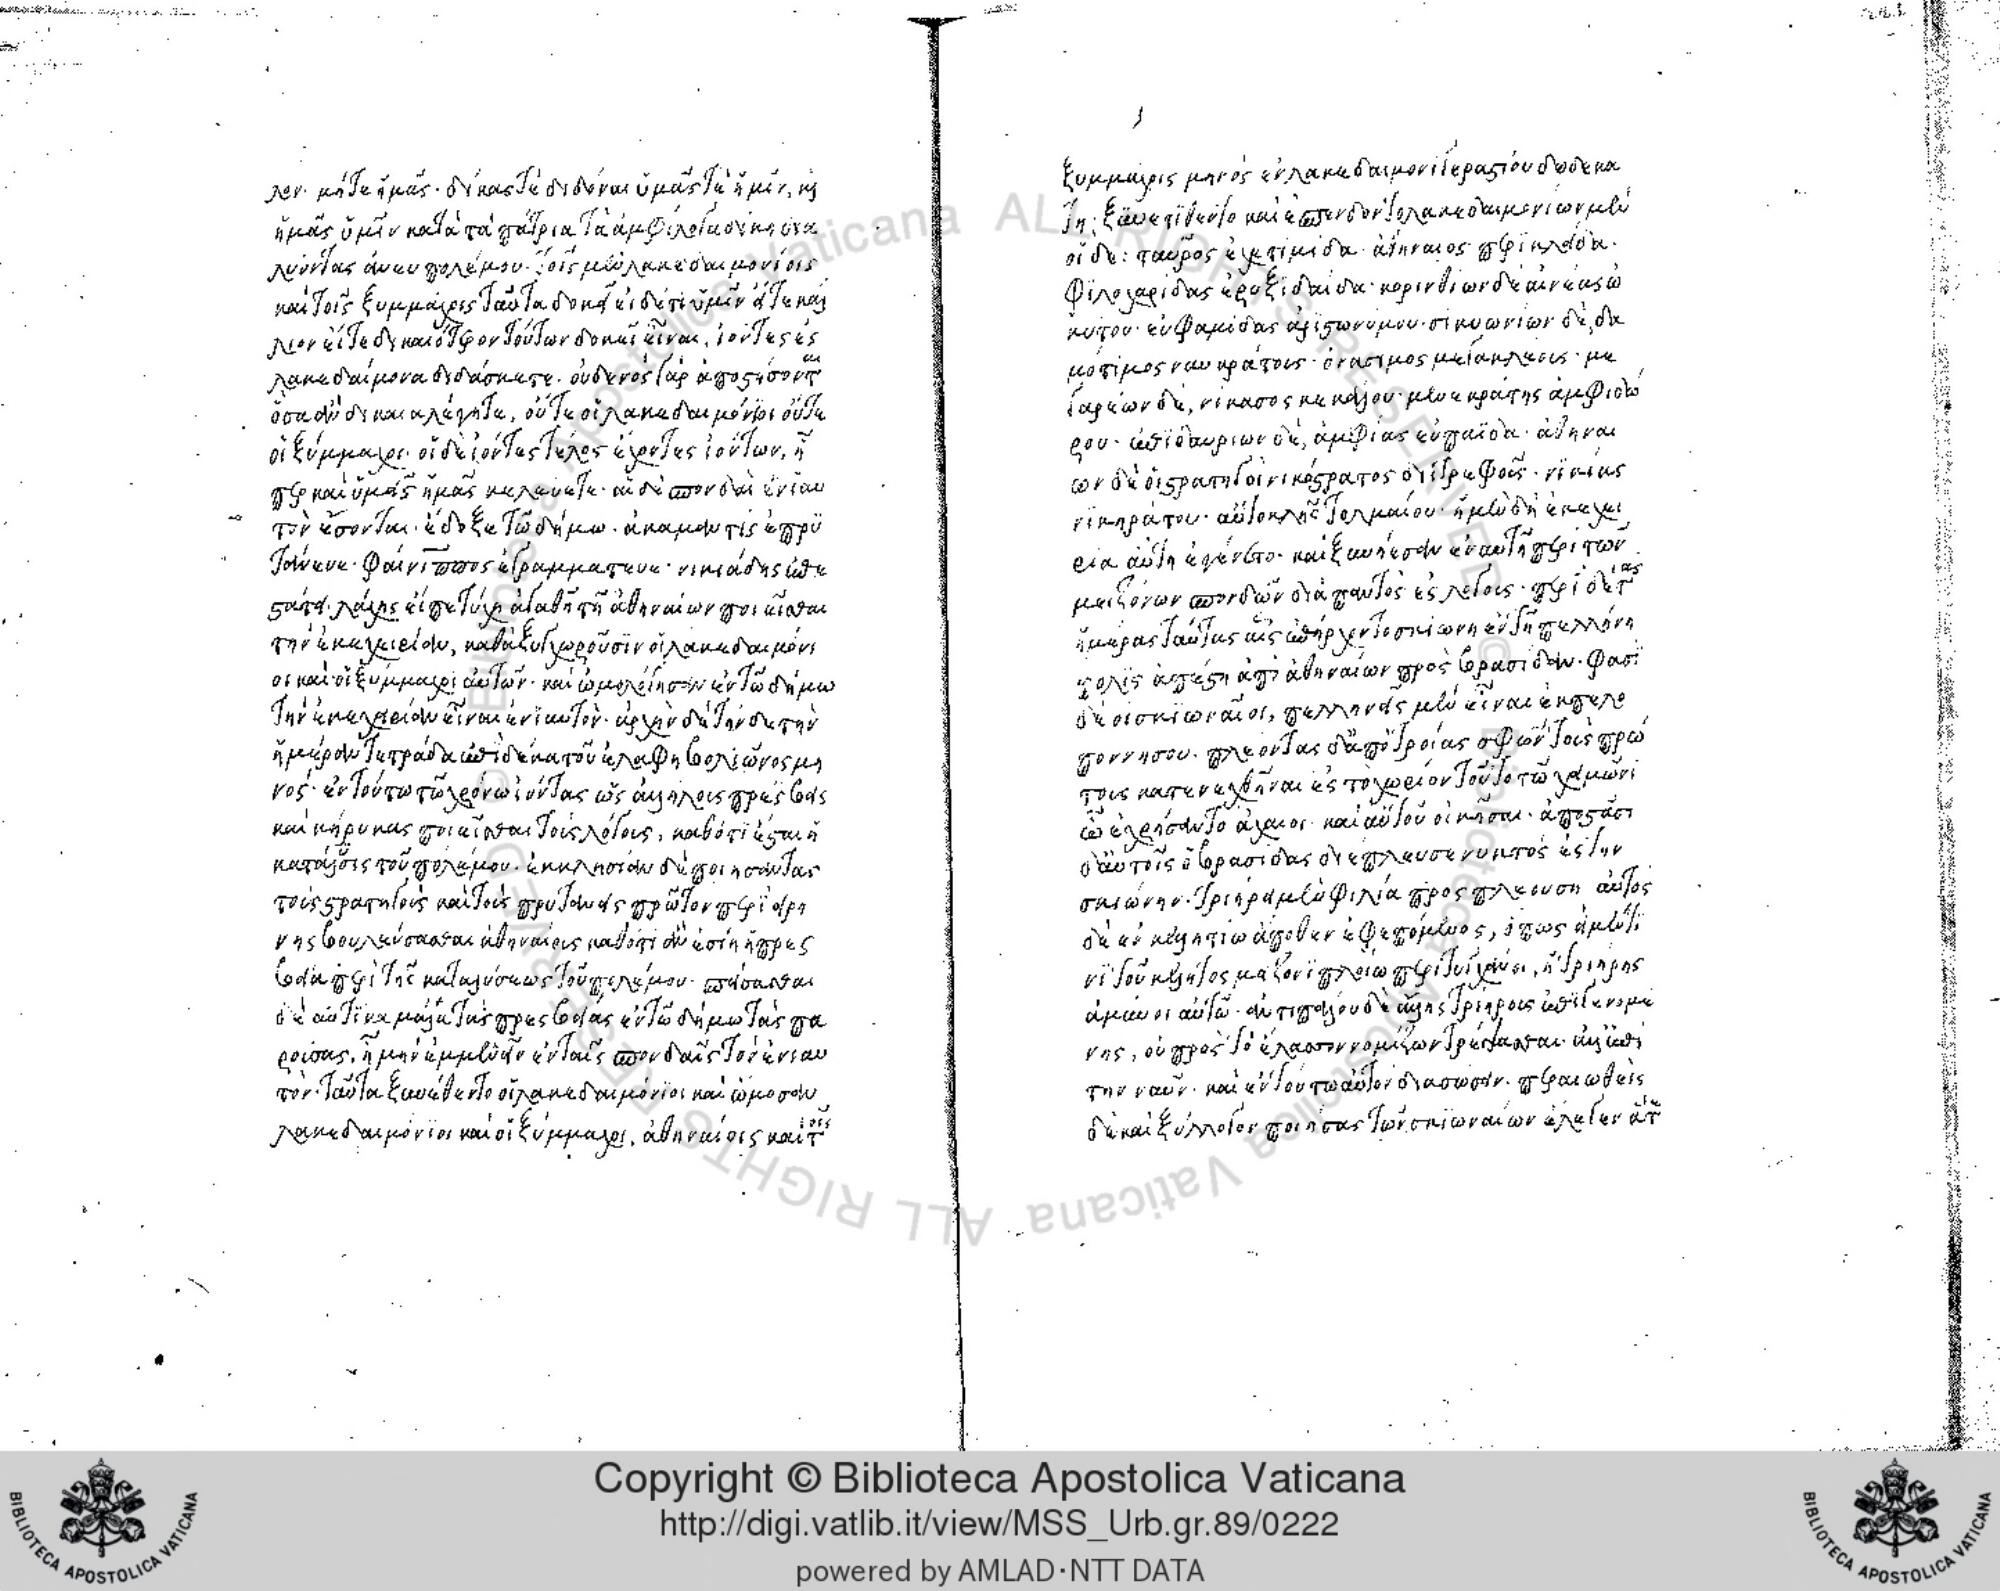 λεν· μήτε ἡμᾶς· δίκας τε διδόναι ὑμᾶς τε ἡμῖν, καὶ
ἡμᾶς ὑμῖν κατὰ τὰ πάτρια τὰ ἀμφίλογα δίκη δια
λύοντας ἄνευ πολέμου· τοῖς μὲν λακεδαιμονίοις
καὶ τοῖς ξυμμάχοις ταῦτα δοκεῖ εἰ δέ τι ὑμῖν εἴτε κάλ
λιον εἴτε δικαιότερον τούτων δοκεῖ εἶναι, ἰόντες ἐς
λακεδαίμονα διδάσκετε· οὐδενὸς γὰρ ἀποστήσονται
ὅσα ἂν δίκαια λέγητε, οὔτε οἱ λακεδαιμόνιοι οὔτε
οἱ ξύμμαχοι· οἱ δὲ ἰόντες τέλος ἔχοντες ἰόντων, ᾗ
περ καὶ ὑμεῖς ἡμᾶς κελεύετε· αἱ δὲ σπονδαὶ ἐνιαυ
τὸν ἔσονται· ἔδοξε τῶ δήμω· ἀκαμαντὶς ἐπρυ
τάνευε· φαίνιππος ἐγραμμάτευε· νικιάδης ἐπε
στάτει· λάχης εἶπε τύχη ἀγαθῆ τῆ ἀθηναίων ποιεῖσθαι
τὴν ἐκεχειρίαν, καθὰ ξυγχωροῦσιν οἱ λακεδαιμόνι
οι καὶ οἱ ξύμμαχοι αὐτῶν· καὶ ὡμολόγησαν ἐν τῶ δήμω
τὴν ἐκεχειρίαν εἶναι ἐνιαυτόν· ἄρχειν δὲ τήνδε τὴν
ἡμέραν τετράδα ἐπὶ δέκα τοῦ ἐλαφηβολιῶνος μη
νός· ἐν τούτω τῶ χρόνω ἰόντας ὡς ἀλλήλους πρέσβεις
καὶ κήρυκας ποιεῖσθαι τοὺς λόγους, καθότι ἔσται ἡ
κατάλυσις τοῦ πολέμου· ἐκκλησίαν δὲ ποιήσαντας
τοὺς στρατηγοὺς καὶ τοὺς πρυτάνεις πρῶτον περὶ εἰρή
νης βουλεύσασθαι ἀθηναίους καθότι ἂν ἐσίη ἡ πρεσ
βεία περὶ τῆς καταλύσεως τοῦ πολέμου· σπείσασθαι
δὲ αὐτίκα μάλα τὰς πρεσβείας ἐν τῶ δήμω τὰς πα
ρούσας, ἦ μὴν ἐμμενεῖν ἐν ταῖς σπονδαῖς τὸν ἐνιαυ
τόν· ταῦτα ξυνέθεντο οἱ λακεδαιμόνιοι καὶ ὤμοσαν
λακεδαιμόνιοι καὶ οἱ ξύμμαχοι, ἀθηναίοις καὶ τοῖς
ξυμμάχοις μηνὸς ἐν λακεδαίμονι γεραστίου δωδεκά
τη· ξυνετίθεντο καὶ ἐσπένδοντο λακεδαιμονίων μὲν
οἵδε: ταῦρος ἐχετιμίδα· ἀθήναιος περικλείδα·
φιλοχαρίδας ἐρυξιδαίδα· κορινθίων δὲ αἰνέας ὠ
κύτου· εὐφαμίδας ἀριστωνύμου· σικυωνίων δὲ, δα
μότιμος ναυκράτους· ὀνάσιμος μεγακλέους· με
γαρέων δὲ, νίκασος κεκάλου· μενεκράτης ἀμφιδώ
ρου· ἐπιδαυρίων δὲ, ἀμφίας εὐπαΐδα· ἀθηναί
ων δὲ οἱ στρατηγοὶ νικόστρατος διιτρεφοῦς· νικίας
νικηράτου· αὐτοκλῆς τολμαίου· ἡ μὲν δὴ ἐκεχει
ρία αὕτη ἐγένετο· καὶ ξυνήεσαν ἐν αὐτῆ περὶ τῶν
μειζόνων σπονδῶν διὰ παντὸς ἐς λόγους· περὶ δὲ τὰς
ἡμέρας ταύτας αἷς ἐπήρχοντο σκιώνη ἐν τῆ πελλήνη
πόλις ἀπέστη ἀπ' ἀθηναίων πρὸς βρασίδαν· φασὶ
δὲ οἱ σκιωναῖοι, πελληνεῖς μὲν εἶναι ἐκ πελο
ποννήσου· πλέοντας δ' ἀπὸ τροίας σφῶν τοὺς πρώ
τους κατενεχθῆναι ἐς τὸ χωρίον τοῦτο τῶ χειμῶνι
ὧ ἐχρήσαντο ἀχαιοί· καὶ αὐτοῦ οἰκῆσαι· ἀποστᾶσι
δ' αὐτοῖς ὁ βρασίδας διέπλευσε νυκτὸς ἐς τὴν
σκιώνην· τριήρει μὲν φιλία προσπλεούση αὐτὸς
δὲ ἐν κελητίω ἄποθεν ἐφεπόμενος, ὅπως εἰ μέν τι
νι τοῦ κέλητος μείζονι πλοίω περιτυγχάνοι, ἡ τριήρης
ἀμύνοι αὐτῶ· ἀντιπάλου δὲ ἄλλης τριήρους ἐπιγενομέ
νης, οὐ πρὸς τὸ ἔλασσον νομίζων τρέψεσθαι· ἀλλ' ἐπὶ
τὴν ναῦν· καὶ ἐν τούτω αὑτὸν διασώσειν· περαιωθεὶς
δὲ καὶ ξύλλογον ποιήσας τῶν σκιωναίων ἔλεγεν ἅ τε
Copyright © Biblioteca Apostolica Vaticana
http://digi.vatlib.it/view/MSS_Urb.gr.89/0222
powered by AMLAD·NTT DATA